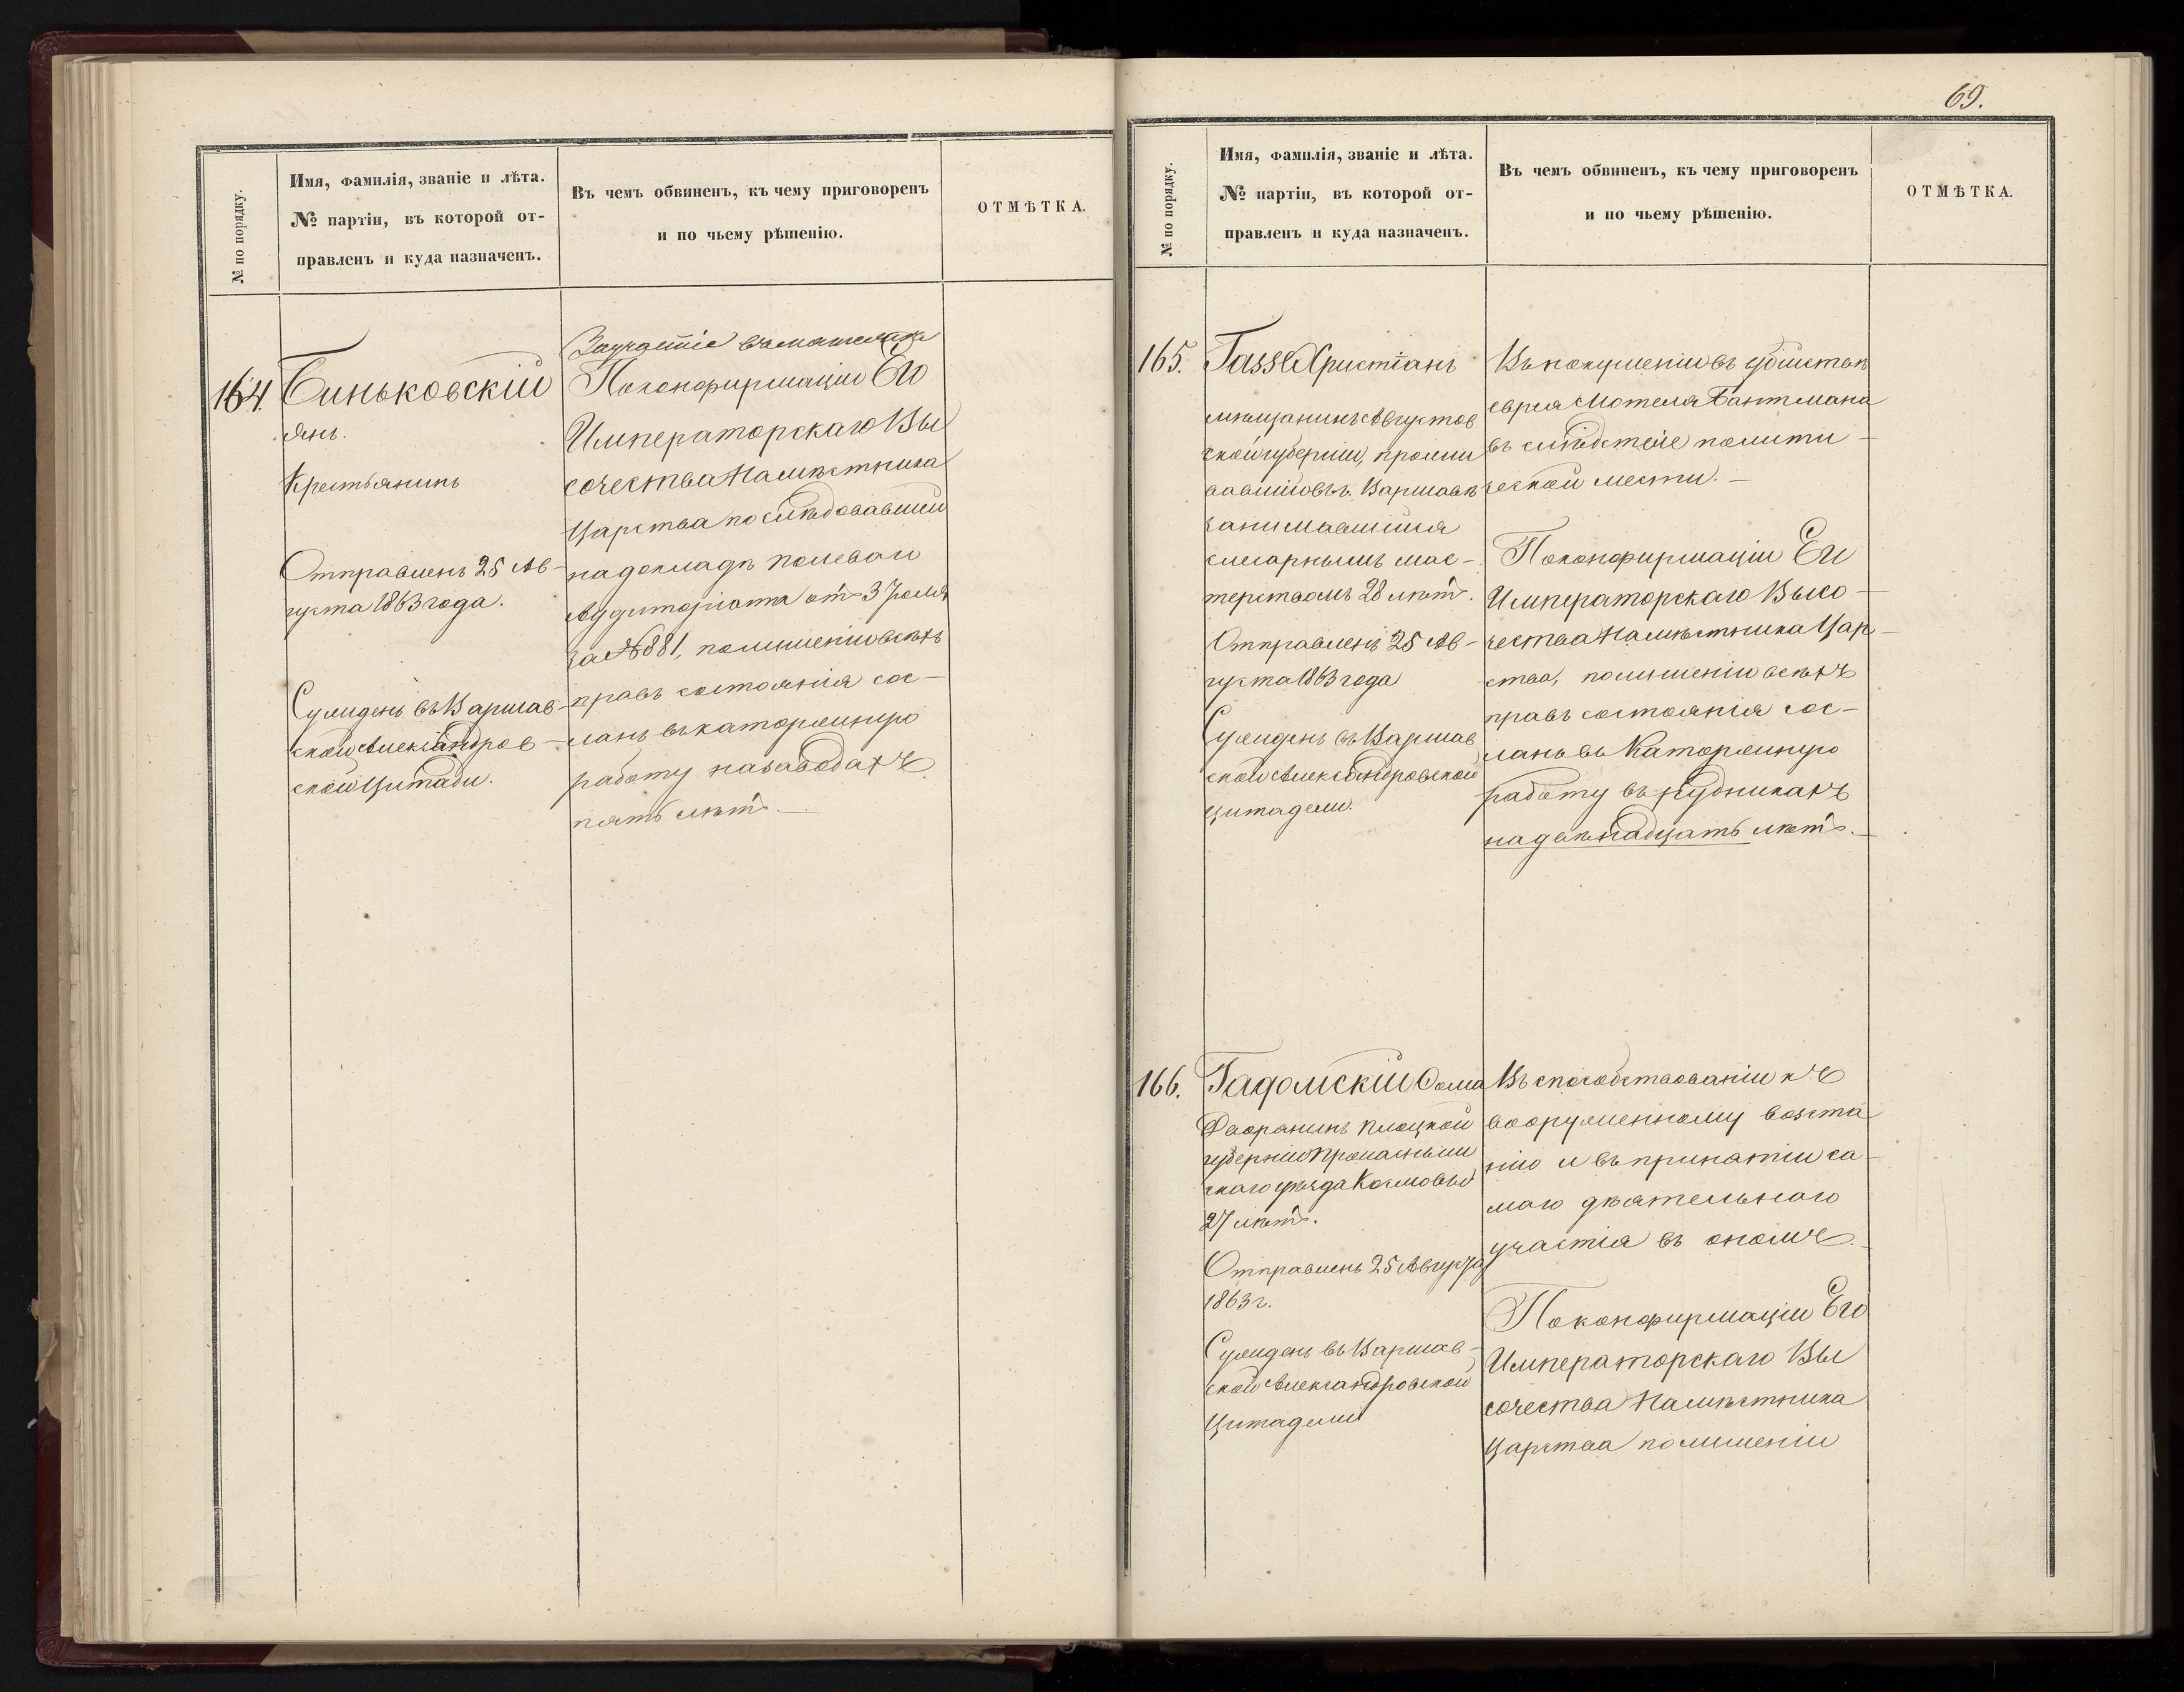 № по порядку.
Имя, фамилія, званіе и лѣта.
№ партіи, въ которой от-
правленъ и куда назначенъ.
Въ чемъ обвиненъ, къ чему приговоренъ
и по чьему рѣшенію.
ОТМѢТКА.
164.
Биньковскій
Янъ.
Крестьянинъ
Отправленъ 25 Ав-
густа 1863 года.
Сужденъ въ Варшав-
ской Александров-
ской Цитади.
За участіе въ мятеже
По конфирмаціи Его
Императорскаго Вы
сочества Намѣстника
Царства послѣдовавшей
на докладъ полеваго
Аудиторіата отъ 3 Іюля
за № 881, по лишеніи всѣхъ
правъ состоянія сос-
ланъ въ каторжную
работу на заводахъ
пять лѣтъ.—
69.
№ по порядку.
Имя, фамилія, званіе и лѣта.
№ партіи, въ которой от-
правленъ и куда назначенъ.
Въ чемъ обвиненъ, къ чему приговоренъ
и по чьему рѣшенію.
ОТМѢТКА.
165.
Христіанъ
мѣщанинъ Августов
ской губерніи, прожи
вавшій въ г. Варшавѣ
занимавшійся
слесарнымъ мас-
терствомъ 28 лѣтъ.
Отправленъ 25 Ав-
густа 1863 года
Сужденъ въ Варшав
ской Александровской
Цитадели.
Въ покушеніи въ убійствѣ
еврея Мотеля Бантмана
въ слѣдствіе полити-
ческой мести.—
По конфирмаціи Его
Императорскаго Высо-
чества Намѣстника Цар-
ства, по лишеніи всѣхъ
правъ состоянія сос-
ланъ въ Каторжную
работу въ рудникахъ
на двѣнадцать лѣтъ.—
166.
Гадомскій Фома
Дворянинъ Плоцкой
губерніи
скаго уѣзда
27 лѣтъ.
Отправленъ 25 Августа
1863 г.
Сужденъ въ Варшав-
ской Александровской
Цитадели
Въ способствованіи къ
вооруженному возста
нію и въ принятіи са-
маго дѣятельнаго
участія въ ономъ.
По конфирмаціи Его
Императорскаго Вы
сочества Намѣстника
Царства по лишеніи